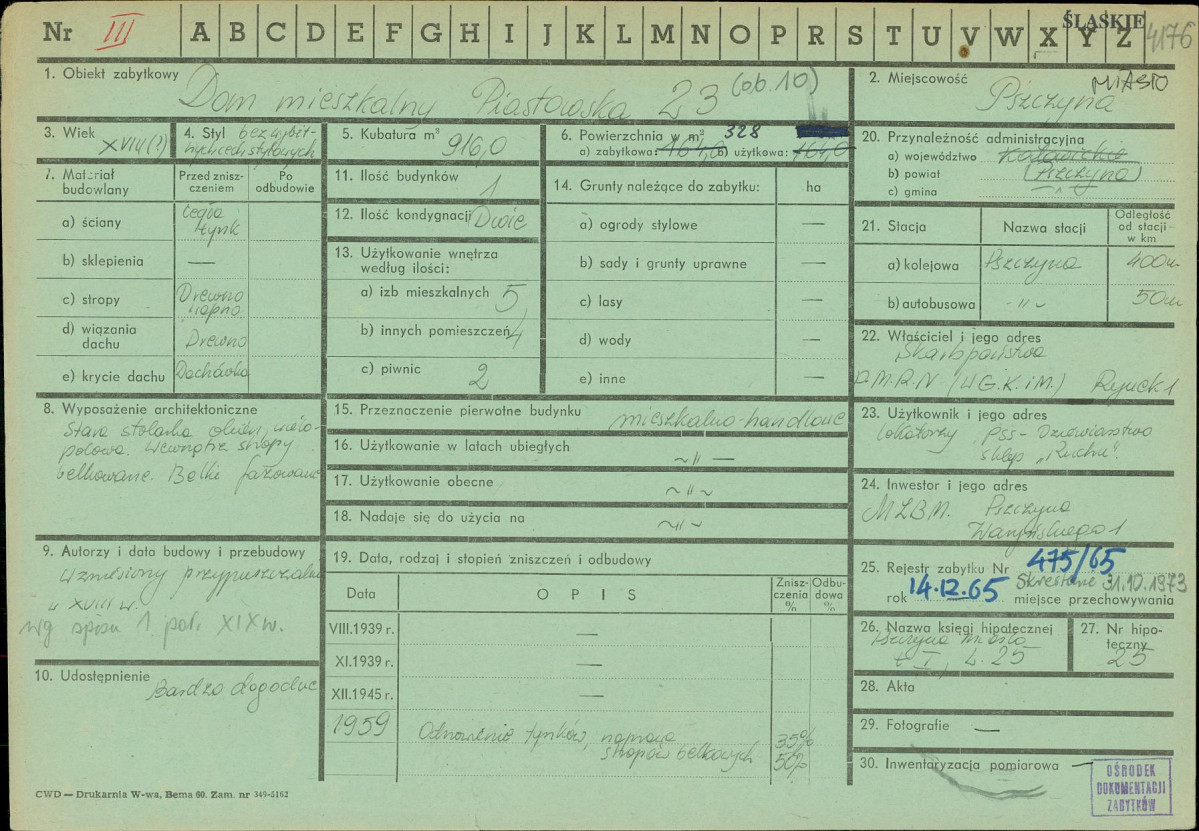 Nr III A B C D E F G H I J K L M N O P R S T U V W X Y Z ŚLĄSKIE 4176
1. Obiekt zabytkowy
Dom mieszkalny Piastowska 23 (ob. 10)
2. Miejscowość MIASTO
Pszczyna
3. Wiek
XVIII (?)
4. Styl bez wybit-
nych cech stylowych
5. Kubatura m³
916,0
6. Powierzchnia w m² 328
a) zabytkowa: 164,0 b) użytkowa: 164,0
20. Przynależność administracyjna
a) województwo Katowickie
b) powiat (Pszczyna)
c) gmina
7. Materiał budowlany
Przed znisz-
czeniem
Po
odbudowie
a) ściany cegła
tynk
b) sklepienia —
c) stropy Drewno
d) wiązania
dachu Drewno
e) krycie dachu Dachówka
11. Ilość budynków 1
12. Ilość kondygnacji Dwie
13. Użytkowanie wnętrza
według ilości:
a) izb mieszkalnych 5
b) innych pomieszczeń 4
c) piwnic 2
14. Grunty należące do zabytku: ha
a) ogrody stylowe —
b) sady i grunty uprawne —
c) lasy —
d) wody —
e) inne —
21. Stacja
Nazwa stacji
Odległość
od stacji
w km
a) kolejowa Pszczyna 400m
b) autobusowa -"- 50m
22. Właściciel i jego adres
Skarb państwa
P.M.R.N (W G.K. i M.) Rynek 1
8. Wyposażenie architektoniczne
Stara stolarka okien, wielo-
polowa. Wewnątrz stropy
belkowane. Belki fazowane
15. Przeznaczenie pierwotne budynku mieszkalno-handlowe
16. Użytkowanie w latach ubiegłych ~ " —
17. Użytkowanie obecne ~ " ~
18. Nadaje się do użycia na ~ " ~
23. Użytkownik i jego adres
lokatorzy PSS - Dziewiarstwo
sklep „Ruchu".
24. Inwestor i jego adres
MZBM. Pszczyna
Waryńskiego 1
9. Autorzy i data budowy i przebudowy
Wzniesiony przypuszczalnie
w XVIII w.
wg spisu 1. poł. XIX w.
19. Data, rodzaj i stopień zniszczeń i odbudowy
Data
O P I S
Znisz-
czenia
%
Odbu-
dowa
%
VIII.1939 r. —
XI.1939 r. —
XII.1945 r. —
1959 Odnowienie tynków, naprawa 35%
stropów belkowych 50%
25. Rejestr zabytku Nr 475/65
rok 14.12.65 Skreślone 31.10.1973
miejsce przechowywania
26. Nazwa księgi hipotecznej
Pszczyna Miasto
t I, L. 25
27. Nr hipo-
teczny
25
10. Udostępnienie
Bardzo dogodne
28. Akta
29. Fotografie —
30. Inwentaryzacja pomiarowa —
OŚRODEK
DOKUMENTACJI
ZABYTKÓW
CWD — Drukarnia W-wa, Bema 60. Zam. nr 349-5162